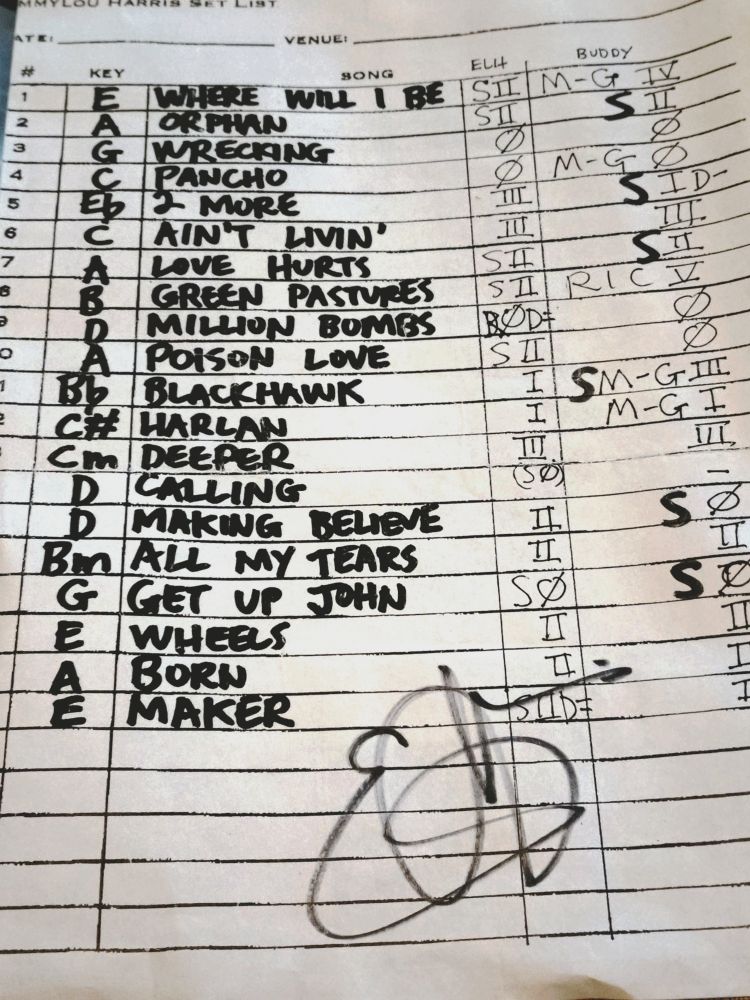 MMYLOU HARRIS SET LIST
ATE: VENUE:
# KEY SONG ELH BUDDY
1 E WHERE WILL I BE SII M-G IV
2 A ORPHAN SII S II
3 G WRECKING Ø Ø
4 C PANCHO Ø M-G Ø
5 Eb 2 MORE III S ID-
6 C AIN'T LIVIN' III III
7 A LOVE HURTS SII S II
8 B GREEN PASTURES SII RIC V
9 D MILLION BOMBS ØD= Ø
0 A POISON LOVE SII Ø
1 Bb BLACKHAWK I SM-G III
2 C# HARLAN I M-G I
Cm DEEPER III III
D CALLING (SØ) -
D MAKING BELIEVE II S Ø
Bm ALL MY TEARS II II
G GET UP JOHN SØ S Ø
E WHEELS II II
A BORN II I
E MAKER SIID= I